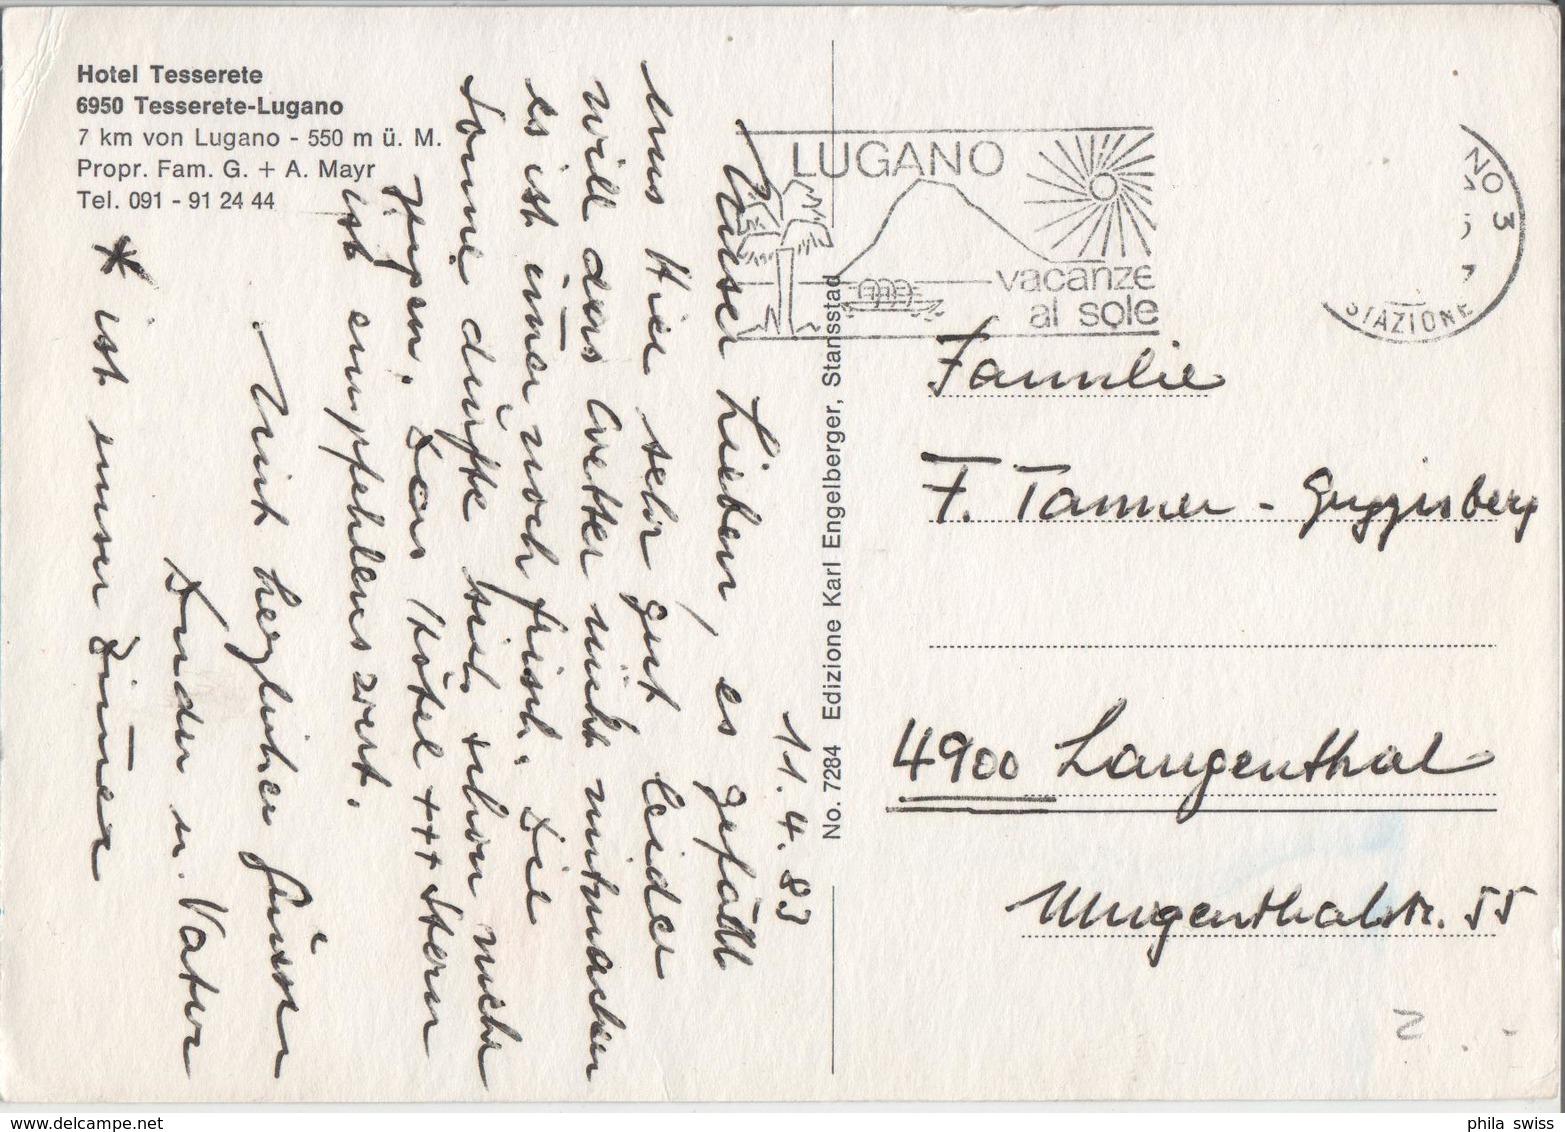 Hotel Tesserete
6950 Tesserete-Lugano
7 km von Lugano - 550 m ü. M.
Propr. Fam. G. + A. Mayr
Tel. 091 - 91 24 44
11.4.83
Unser Lieben, es gefällt
uns Hier sehr gut leider
will das Wetter nicht mitmachen
es ist im̅er noch frisch. Die
Sonne dürfte sich schon mehr
Das Hotel +++ Stern
ist empfehlenswert.
Mit herzlichen Grüssen
u. Vater
* ist unser Zim̅er
No. 7284 Edizione Karl Engelberger, Stansstad
LUGANO
vacanze
al sole
NO 3
STAZIONE
Familie
F. Tanner - Guggisberg
4900 Langenthal
Murgenthalstr. 55
phila swiss